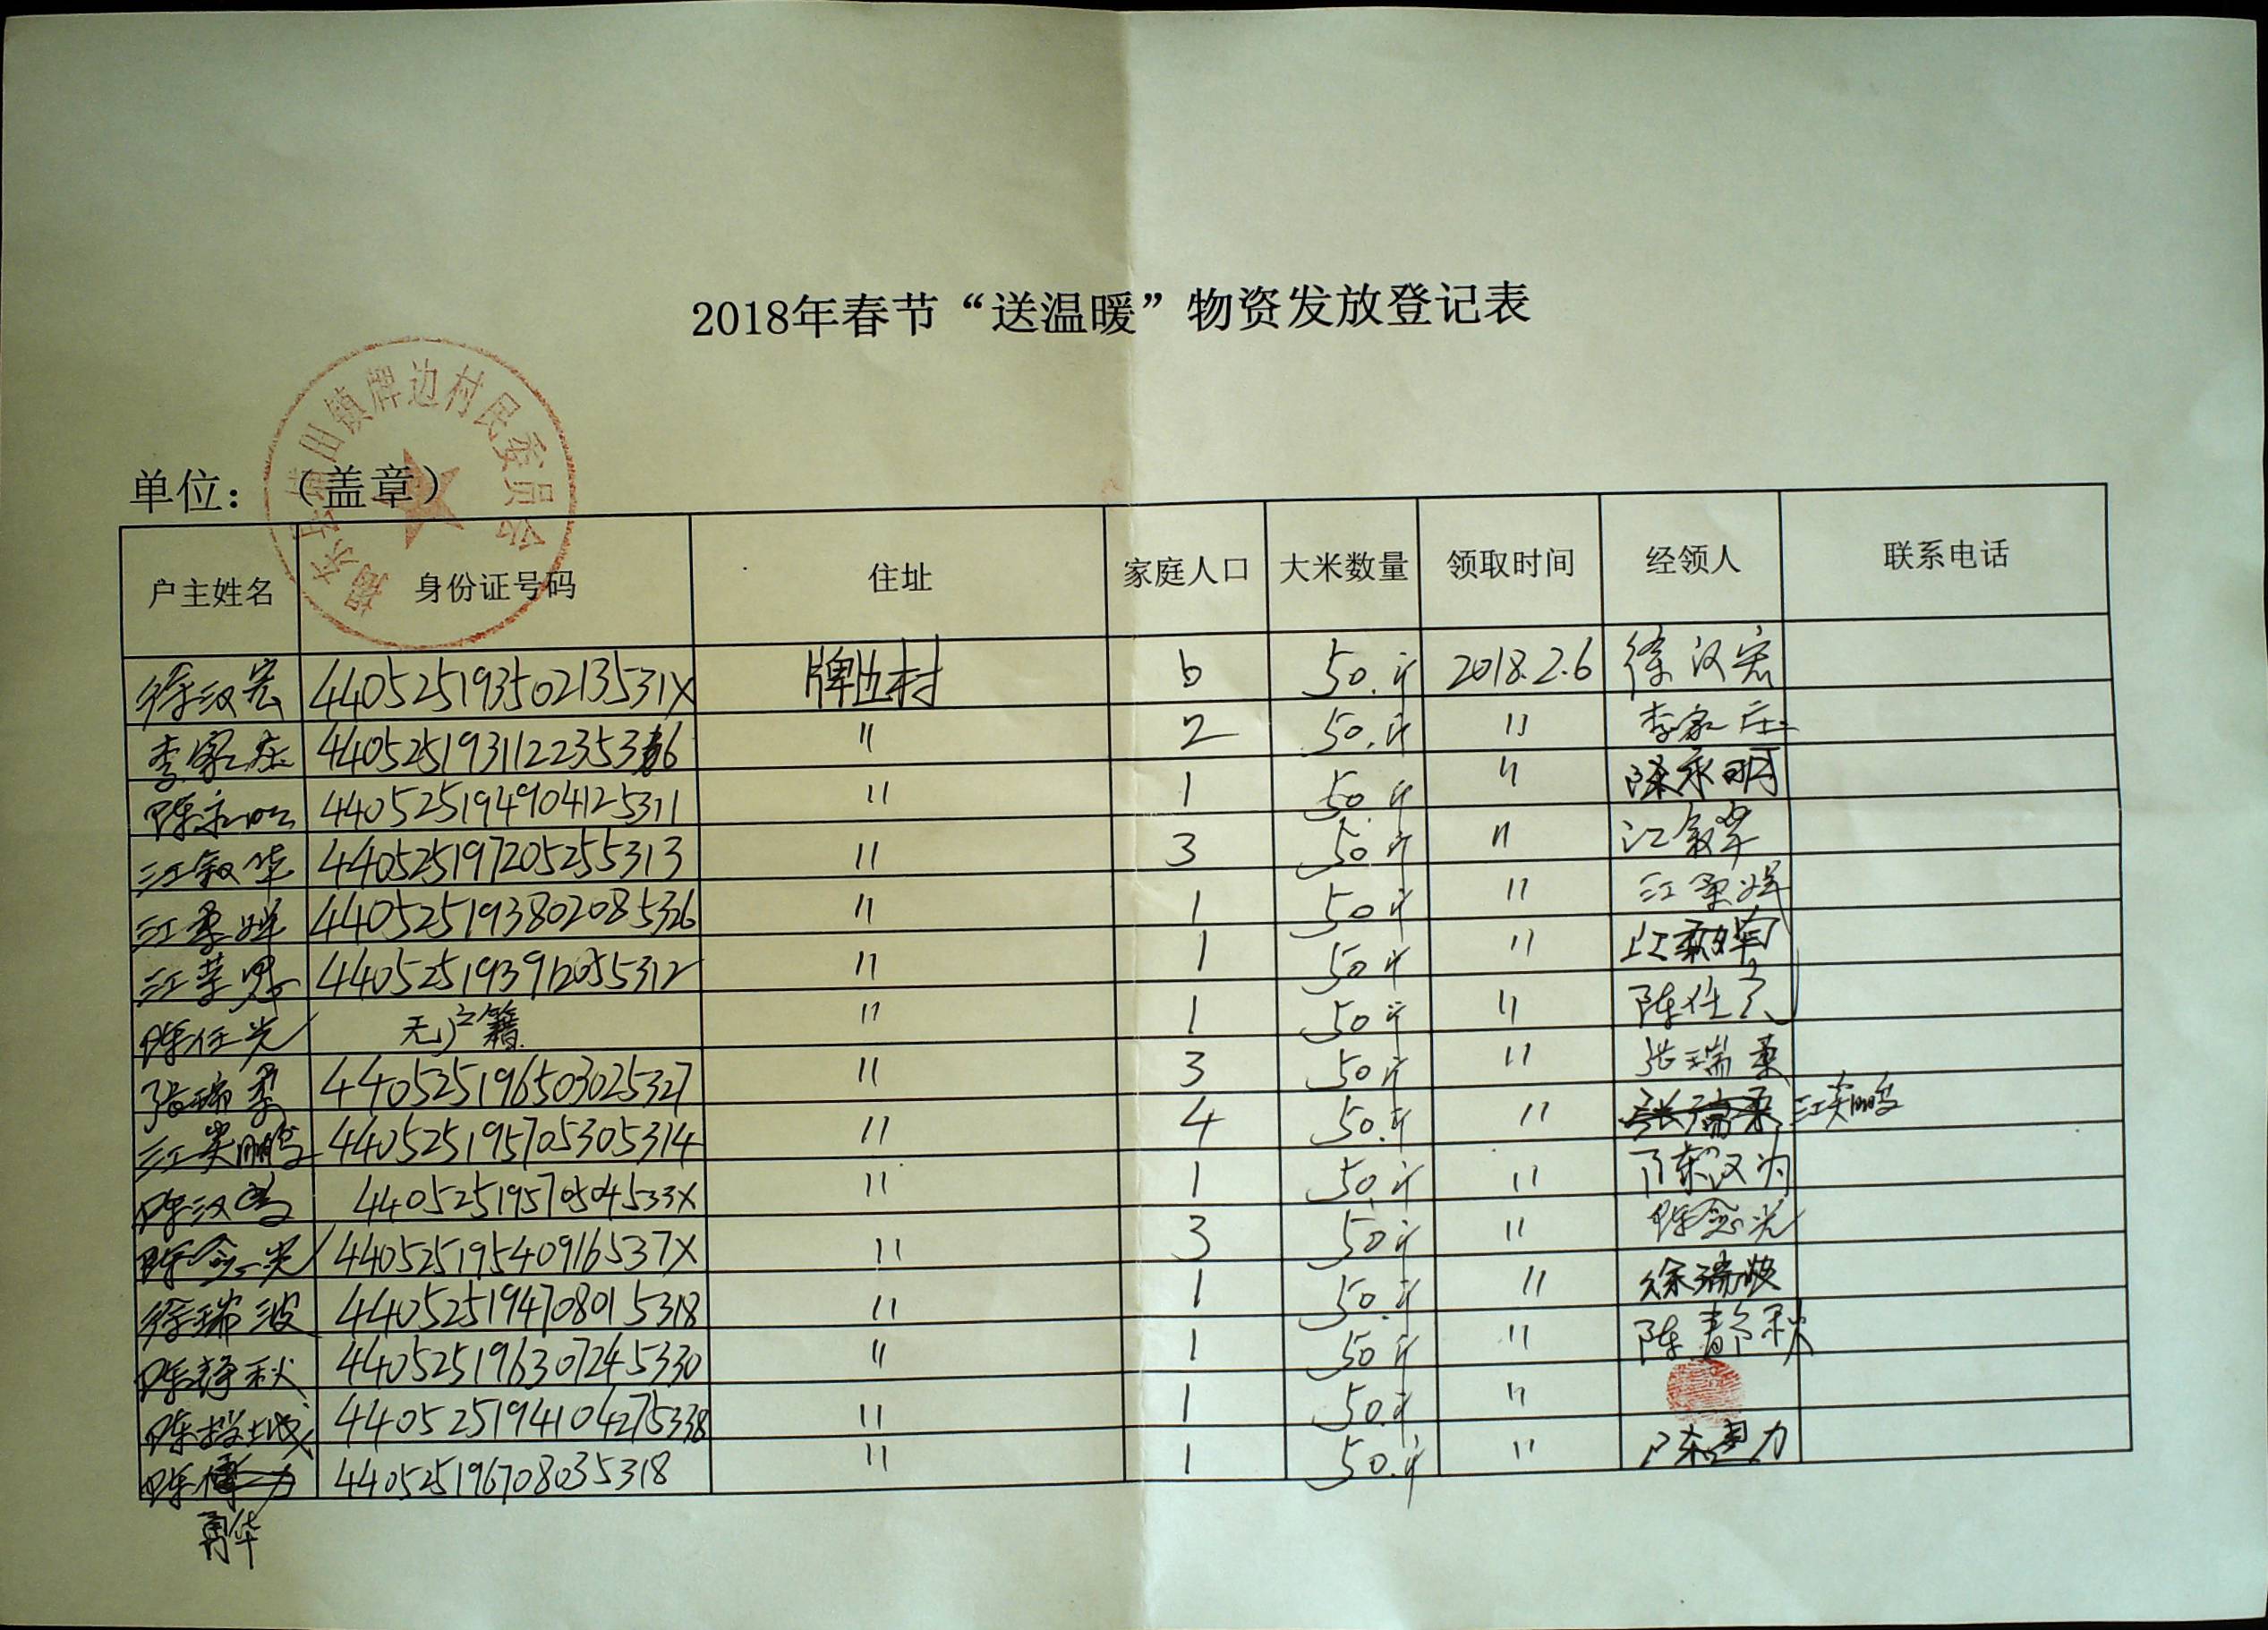 2018年春节“送温暖”物资发放登记表
镇牌边村民委员会
单位：（盖章）
户主姓名 身份证号码 住址 家庭人口 大米数量 领取时间 经领人 联系电话
徐汉宏 44052519350213531X 牌边村 6 50.斤 2018.2.6 徐汉宏
李家庄 4405251931122353 〃 2 50.斤 〃 李家庄
陈永明 440525194904125311 〃 1 50.斤 〃 陈永明
江叙华 440525197205255313 〃 3 50斤 〃 江叙华
江柔娥 440525193802085326 〃 1 50斤 〃 江柔娥
江 440525193912055312 〃 1 50斤 〃
陈任光 无户籍 〃 1 50斤 〃 陈任光
张瑞柔 440525196503025327 〃 3 50斤 〃 张瑞柔
江炎鹏 440525195705305314 〃 4 50.斤 〃 张瑞柔 江炎鹏
陈汉为 44052519570504533X 〃 1 50.斤 〃 陈汉为
陈念光 44052519540916537X 〃 3 50斤 〃 陈念光
徐瑞波 440525194708015318 〃 1 50.斤 〃 徐瑞波
陈静秋 440525196307245330 〃 1 50斤 〃 陈静秋
陈 城 440525194104275338 〃 1 50.斤 〃
陈 440525196708035318 〃 1 50.斤 〃 陈勇力
勇华